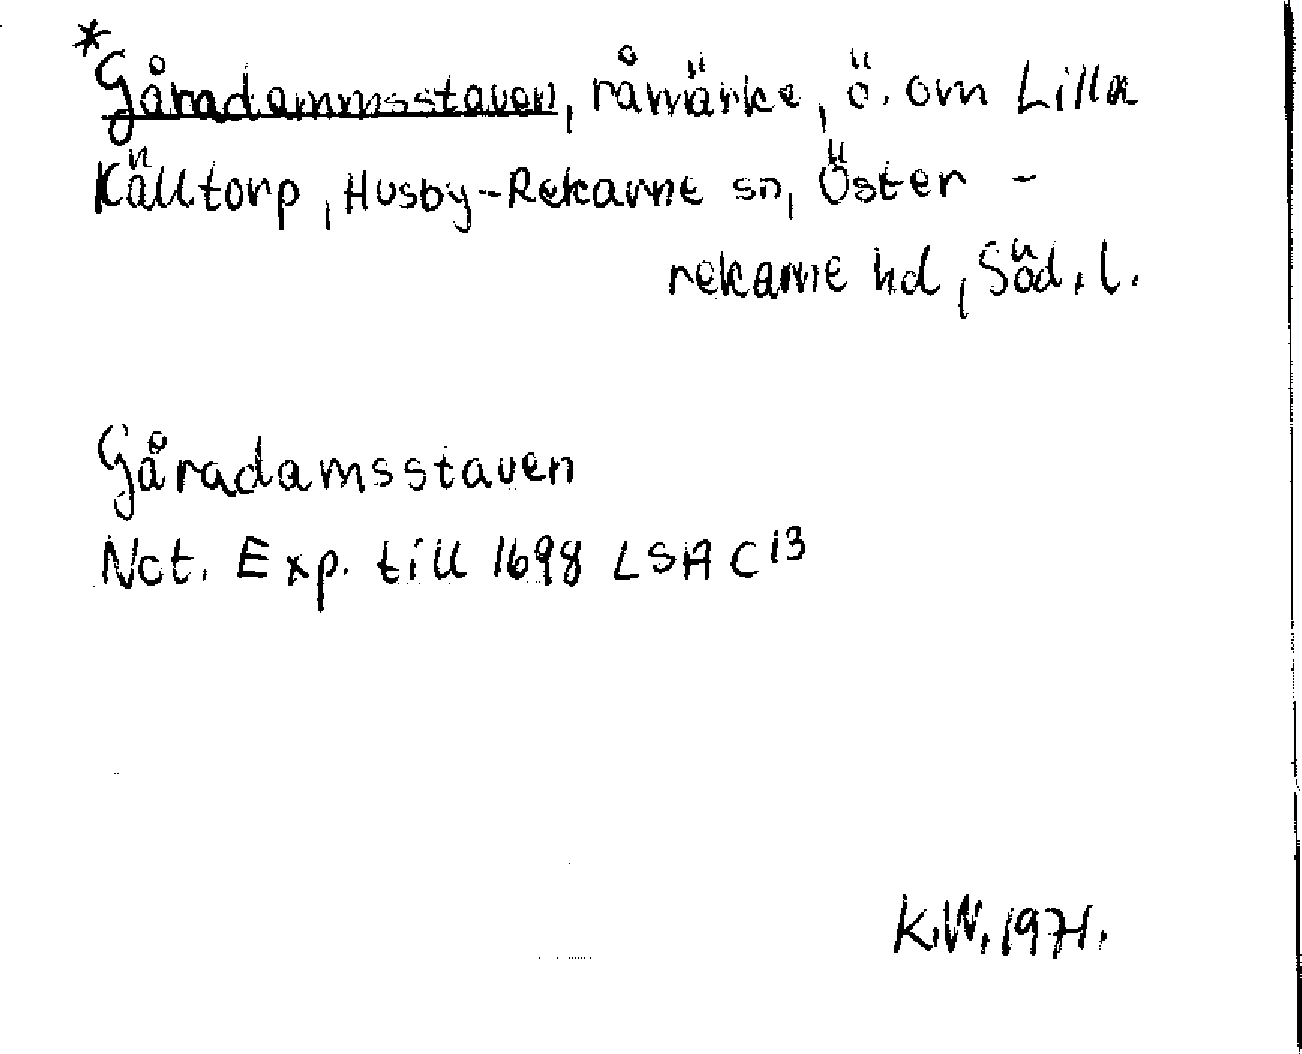 *Gåradammsstaven, råmärke, ö. om Lilla
Källtorp, Husby-Rekarne sn, Öster-
rekarne hd, Söd. l.
Gåradamsstaven
Not. Exp. till 1698 LSA C13
K.W. 1971.